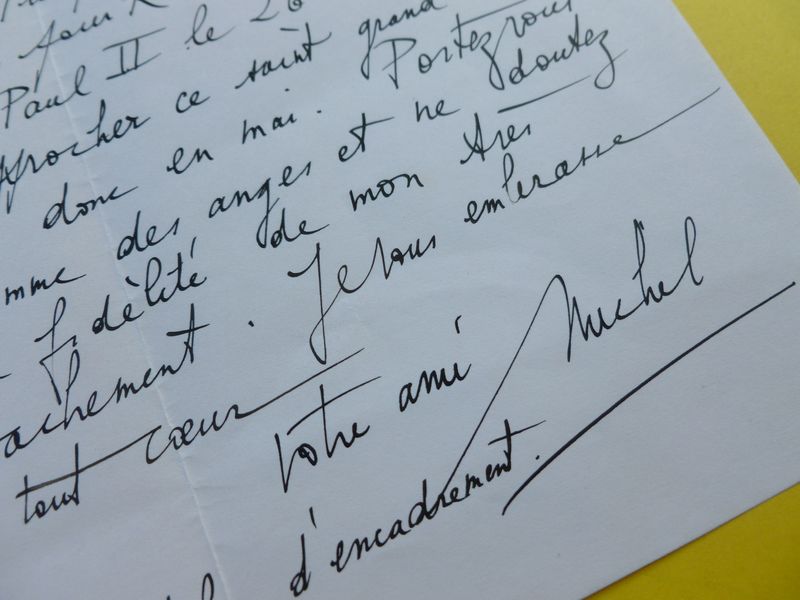 jour
Paul II le 20
procher ce saint grand
donc en mai. Portez vous
mme des anges et ne doutez
fidélité de mon très
achement. Je vous embrasse
tout cœur
votre ami Michel
d'encadrement.